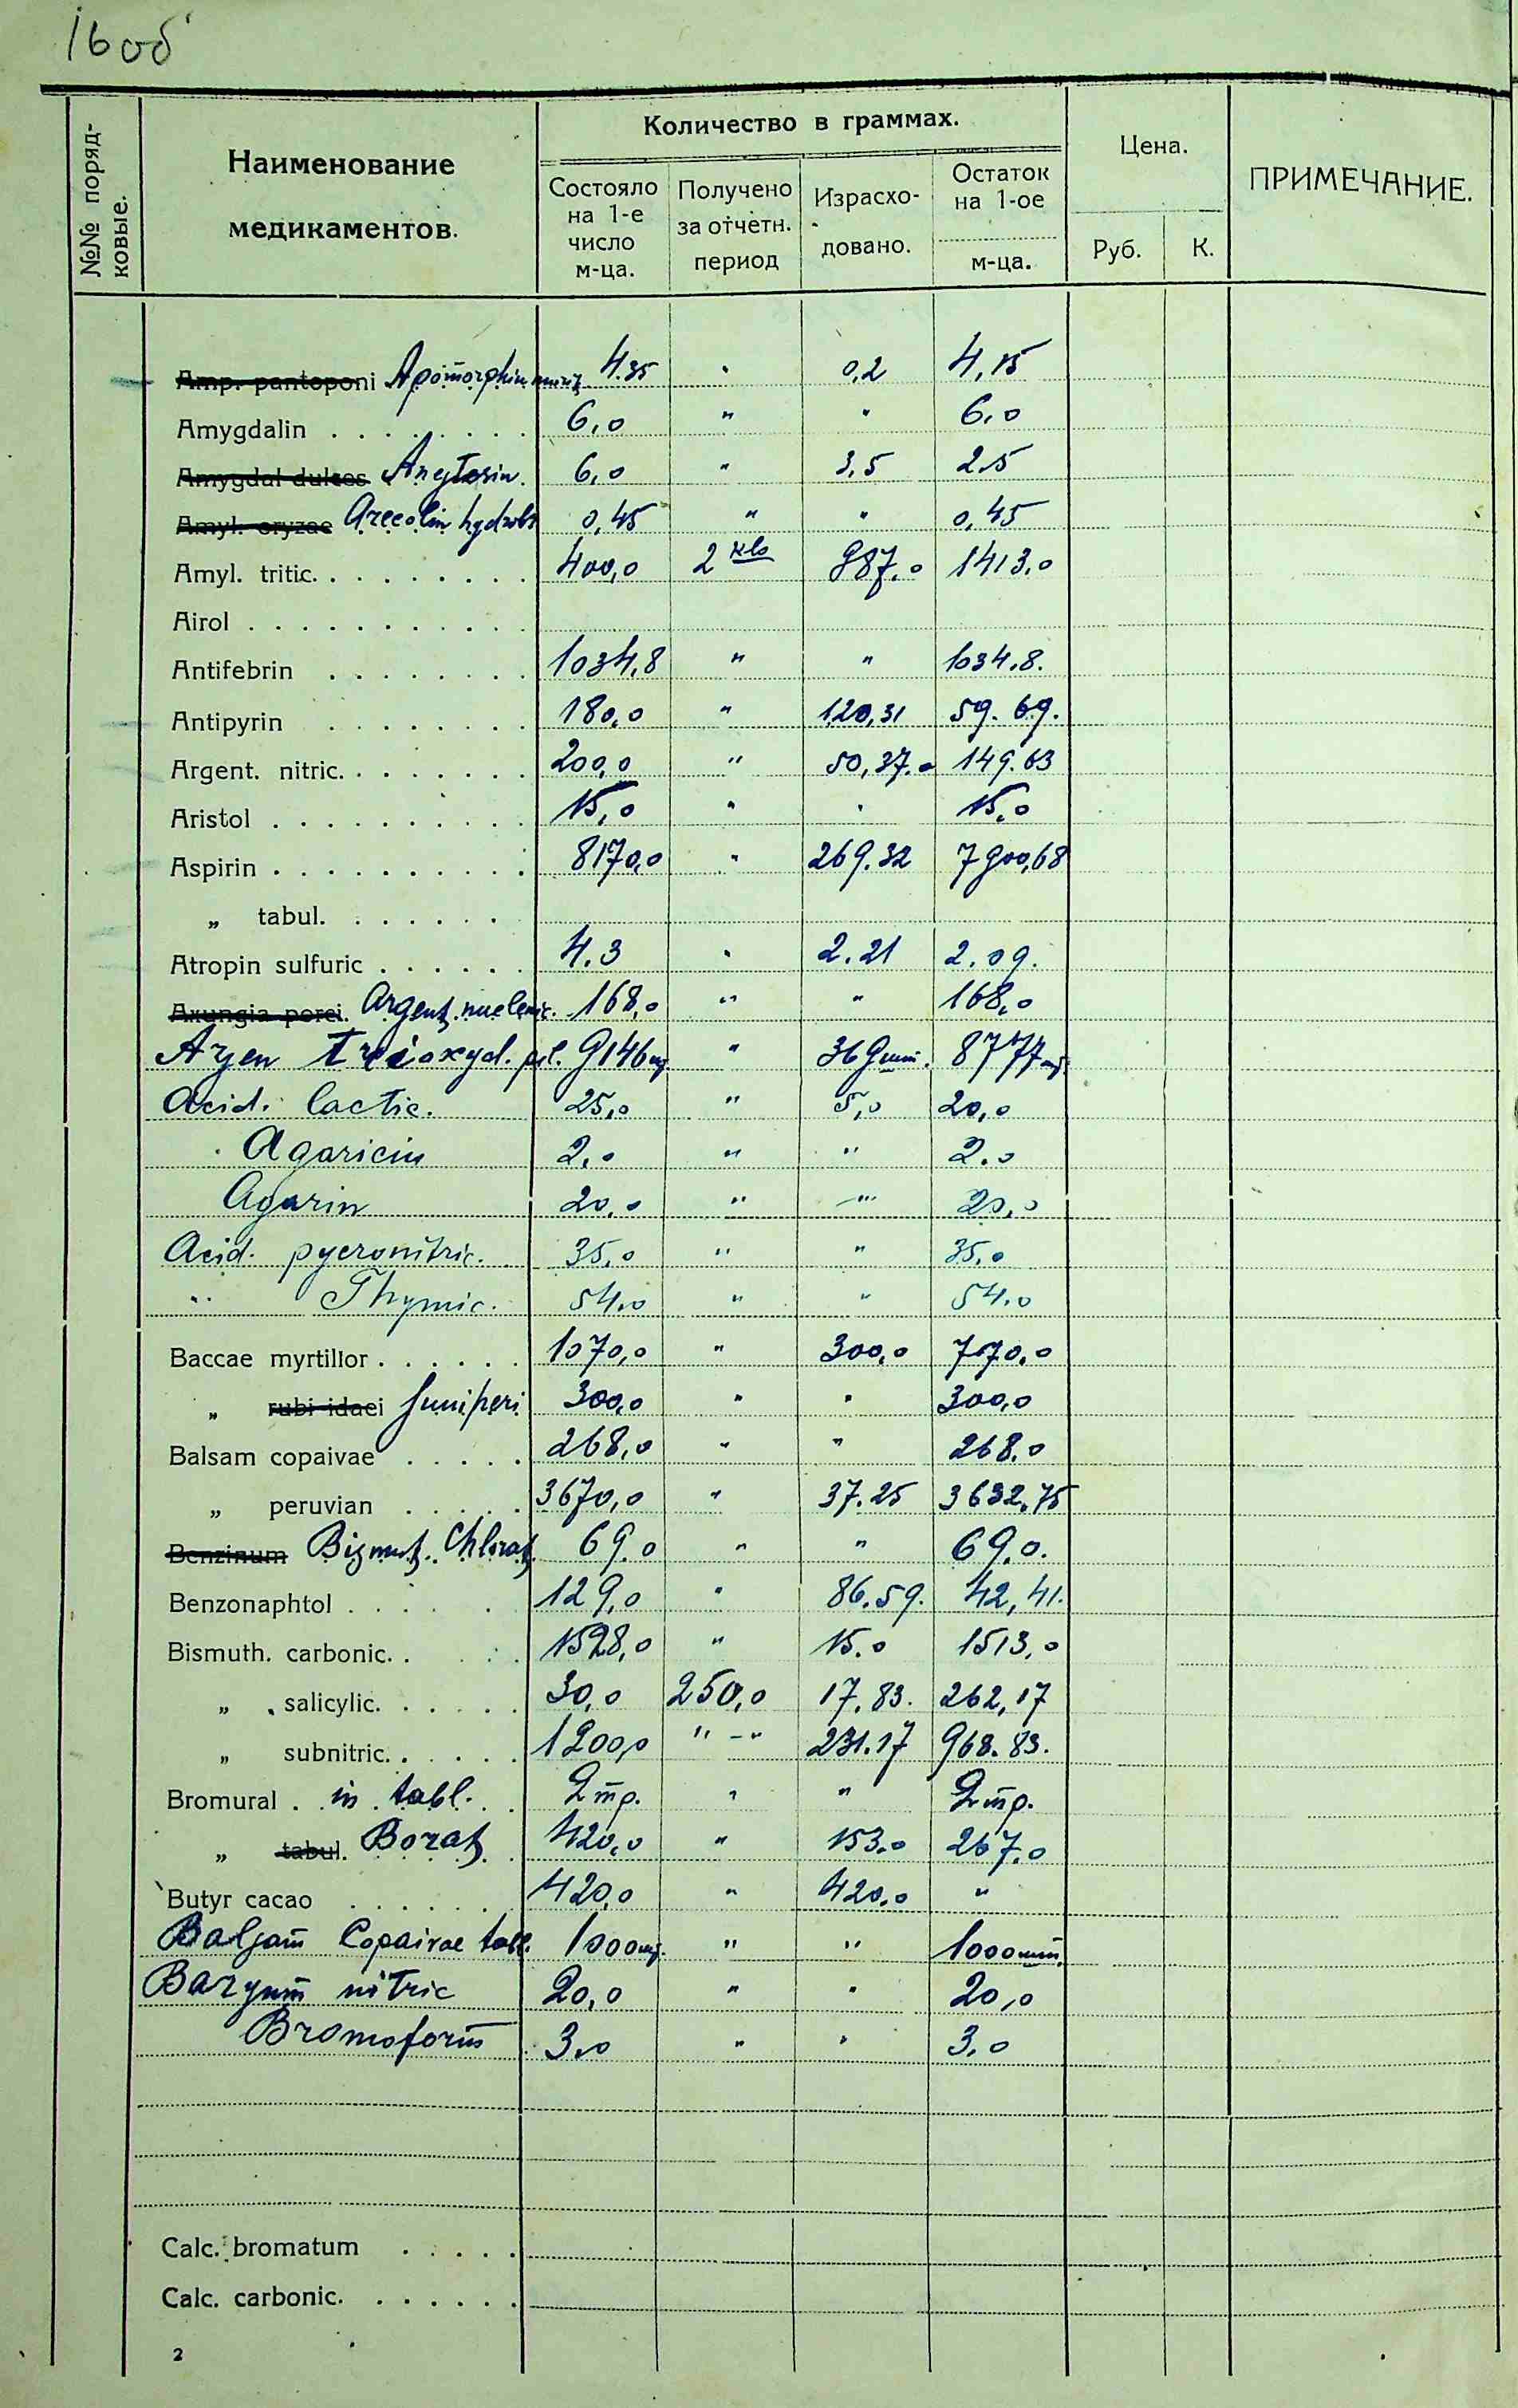 16 об
№№ поряд-
ковые.
Наименование
медикаментов.
Количество в граммах.
Состояло
на 1-е
число
м-ца.
Получено
за отчетн.
период
Израсхо-
довано.
Остаток
на 1-ое
м-ца.
Цена.
Руб. К.
ПРИМЕЧАНИЕ.
Amp. pantoponi Apomorphin 4.35 " 0,2 4,15
Amygdalin . . . . . . . . 6,0 " " 6,0
Amygdal dulces Anytosin. 6,0 " 3,5 2.5
Amyl. oryzae Arecolin hydrobr 0,45 " " 0,45
Amyl. tritic. . . . . . . . . 400,0 2 klo 987.0 1413.0
Airol . . . . . . . . . . .
Antifebrin . . . . . . . . 1034,8 " " 1034.8.
Antipyrin . . . . . . . . 180,0 " 120,31 59.69.
Argent. nitric. . . . . . . . 200,0 " 50,37.0 149.63
Aristol . . . . . . . . . . 15,0 " " 15,0
Aspirin . . . . . . . . . . 8170,0 " 269.32 7900,68
„ tabul. . . . . . . .
Atropin sulfuric . . . . . . 4.3 " 2.21 2.09.
Axungia porci. Argent. nucleinic. 168,0 " " 168,0
Arsen trioxyd. pil. 9146 " 369 8777
Acid. lactic. 25,0 " 5,0 20,0
Agaricin 2,0 " " 2.0
Agarin 20,0 " " 20,0
Acid. pycronitric. 35,0 " " 35,0
" Thymic. 54.0 " " 54.0
Baccae myrtillor . . . . . . 1070,0 " 300,0 770,0
„ rubi idaei Juniperi 300,0 " " 300,0
Balsam copaivae . . . . . 268,0 " " 268.0
„ peruvian . . . . . 3670,0 " 37.25 3632,75
Benzinum Bismut. Chlorat. 69.0 " " 69.0.
Benzonaphtol . . . . . . 129,0 " 86.59. 42,41.
Bismuth. carbonic. . . . . 1528,0 " 15.0 1513,0
„ salicylic. . . . . . 30,0 250,0 17.83. 262,17
„ subnitric. . . . . . 1200,0 " - " 231.17 968.83.
Bromural . in tabl. . 2 тр. " " 2 тр.
„ tabul. Borat. 420,0 " 153.0 267.0
Butyr cacao . . . . . . 420,0 " 420,0 "
Balsam Copaivae tabl. 1000 " " 1000
Baryum nitric 20,0 " " 20,0
Bromoform 3,0 " " 3,0
Calc. bromatum . . . . .
Calc. carbonic. . . . . . .
2